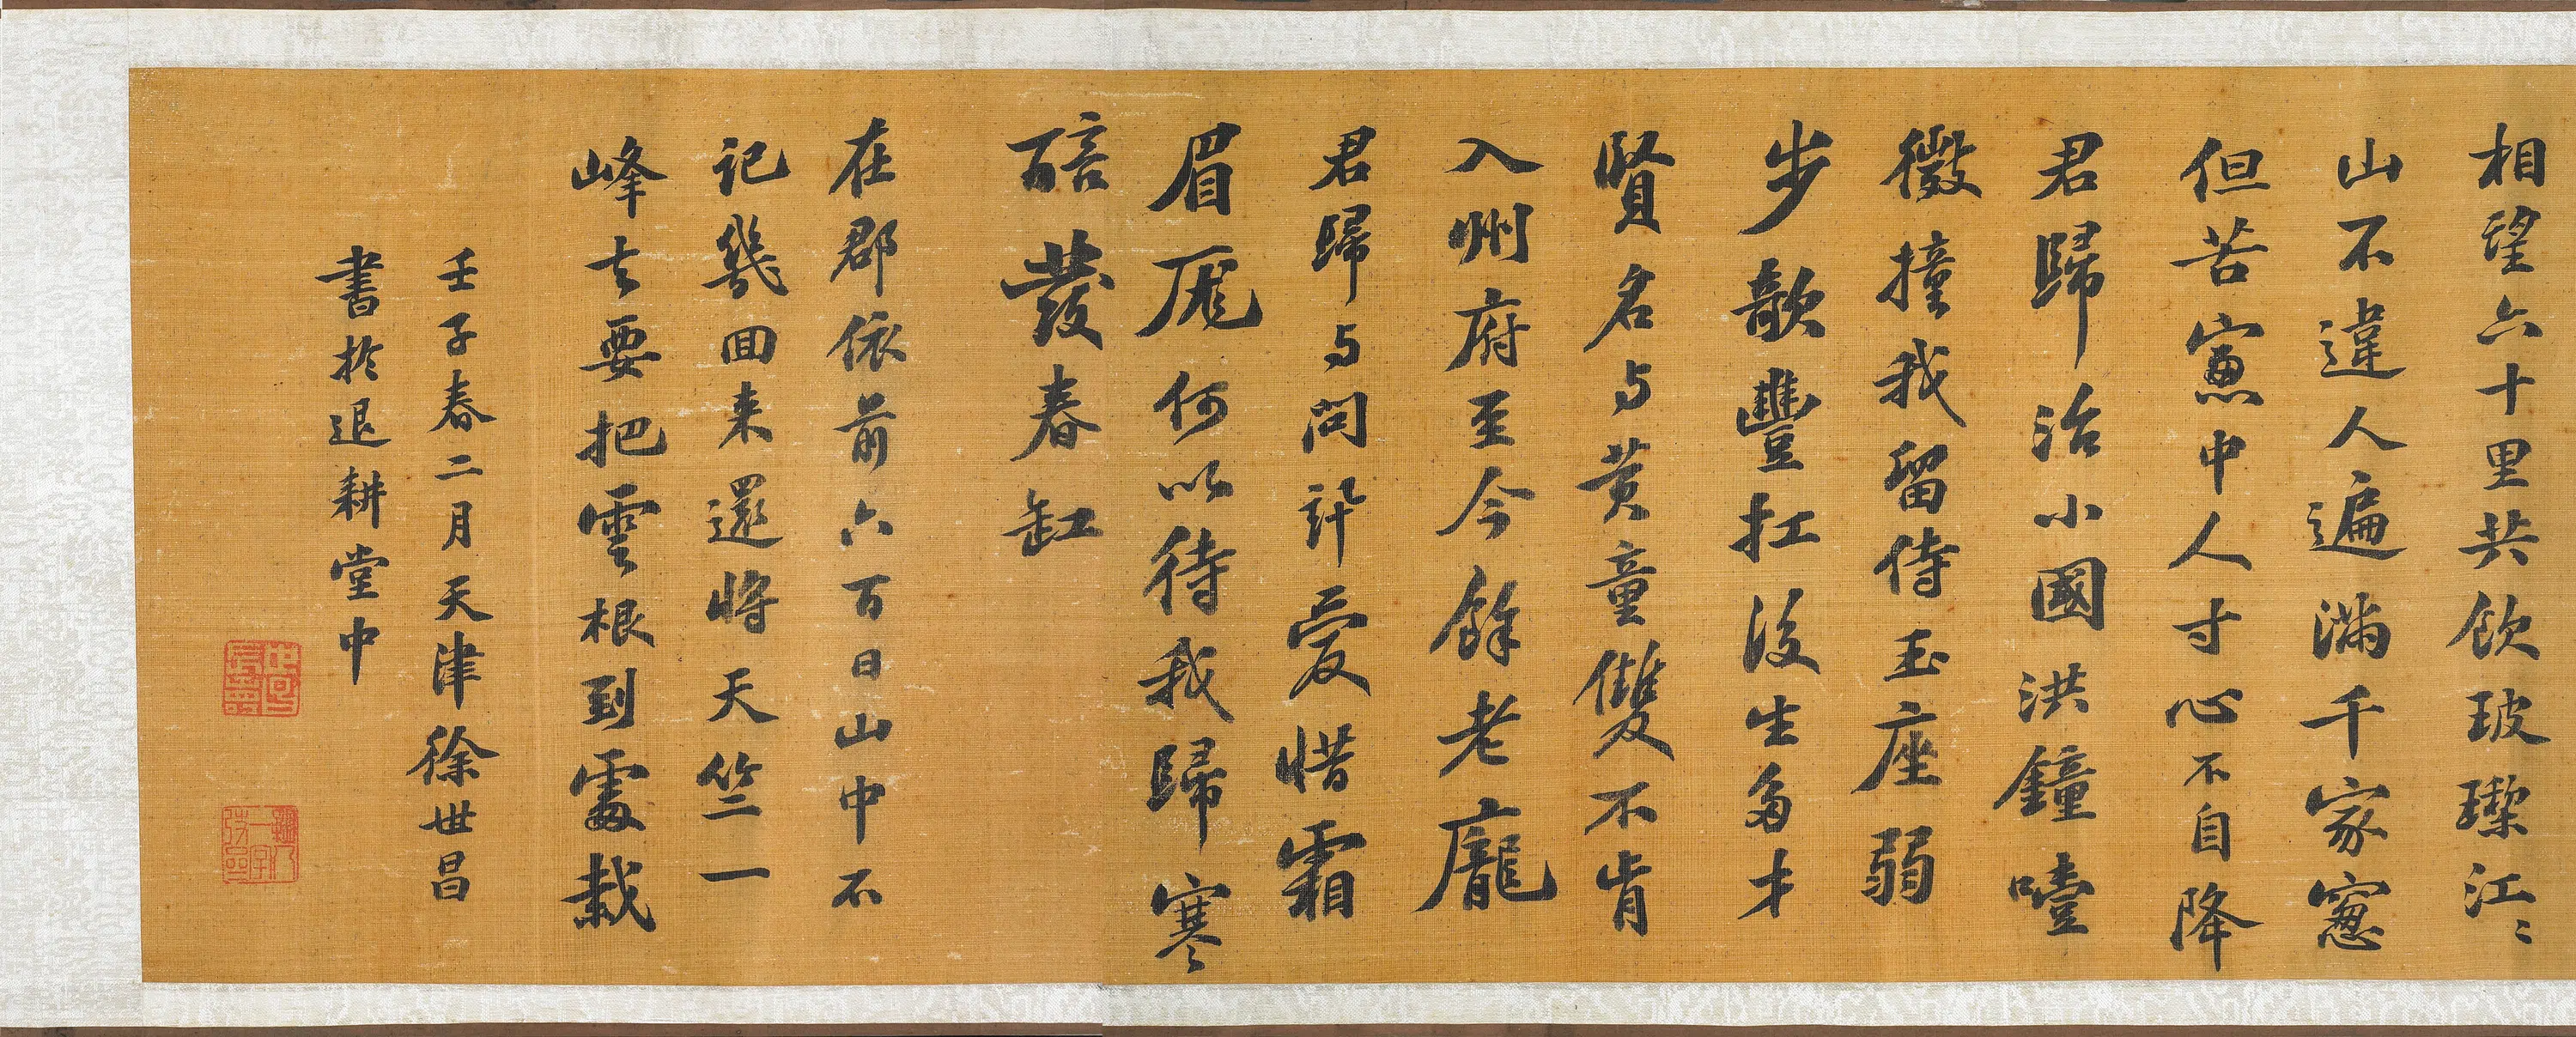 相望六十里共飲玻瓈江〻
山不違人遍滿千家窻
但苦窻中人寸心不自降
君歸治小國洪鐘噎
微撞我留侍玉座弱
步欹豐扛後生多才
賢名与黃童雙不肯
入州府至今餘老龐
君歸与問訊愛惜霜
眉厖何以待我歸寒
醅發春缸
在郡依前六百日山中不
記幾回来還將天竺一
峰去要把雲根到處栽
壬子春二月天津徐世昌
書於退耕堂中